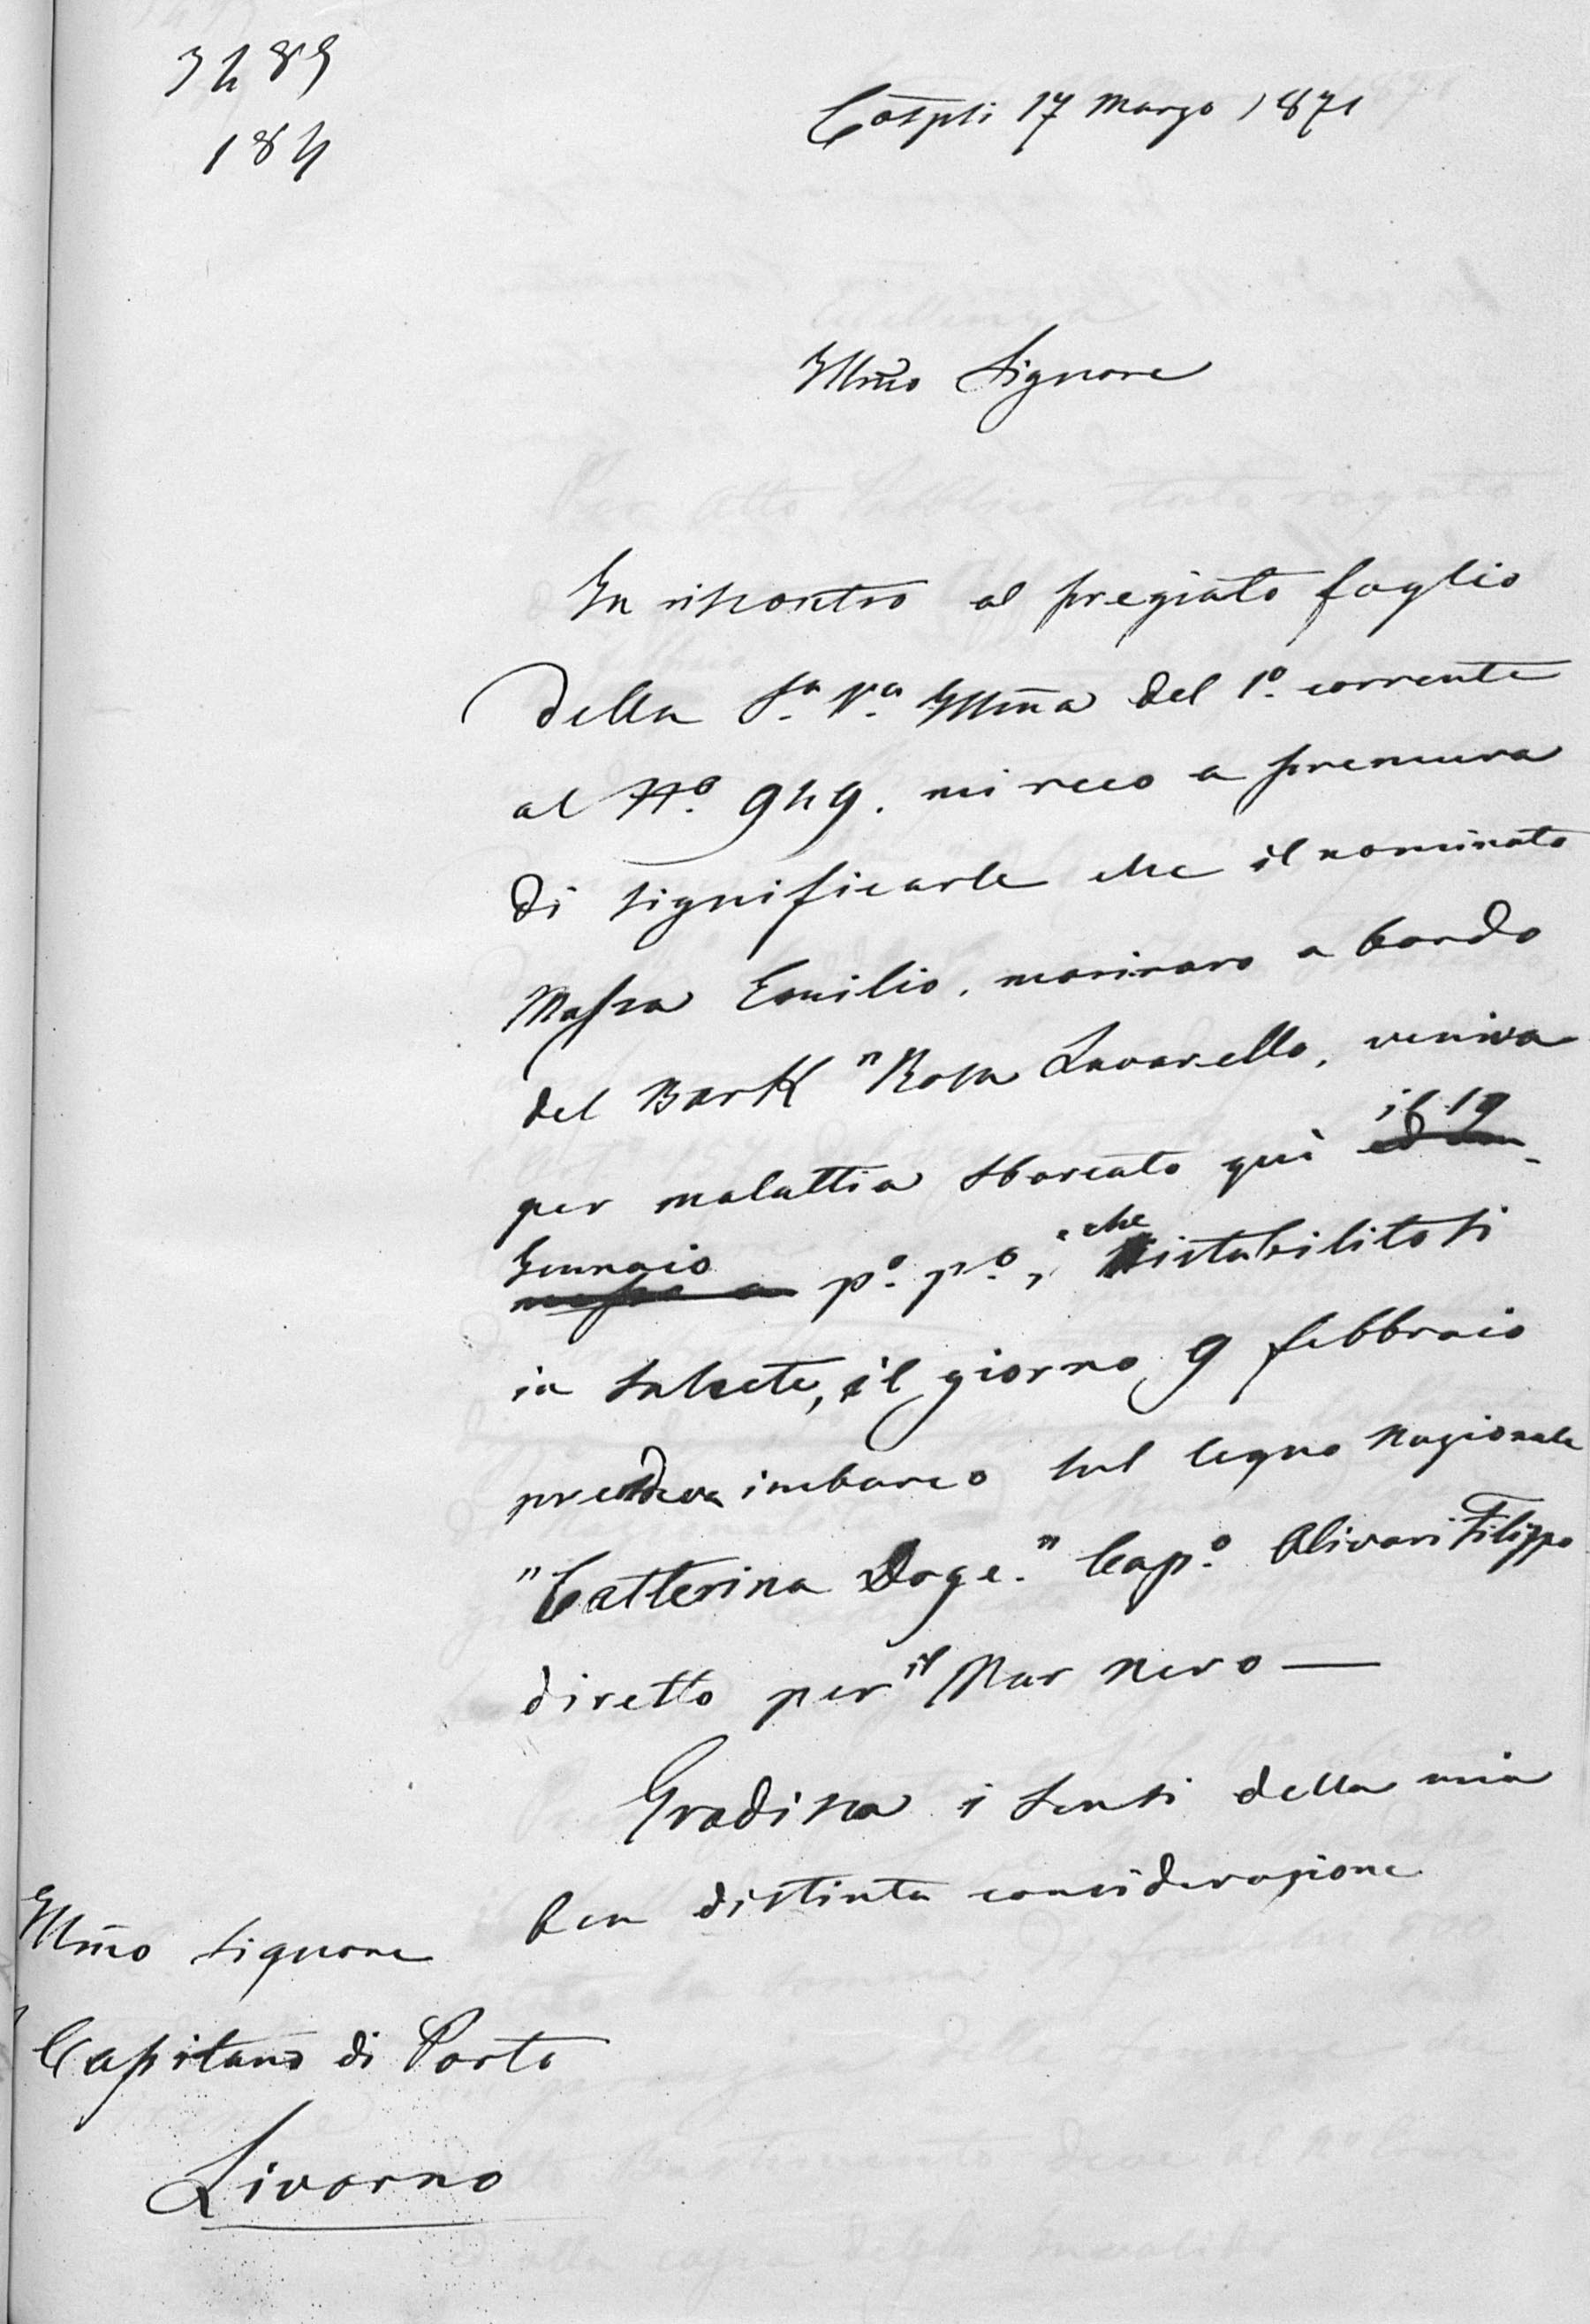 3489
184
Cospli 17 Marzo 1871
Illmo Signore
In riscontro al pregiato foglio
della Sa. Va. Illma del 1o. corrente
al No. 949. mi reco a premura
di significarle che il nominato
Massa Emilio, marinaro a bordo
del Bark "Rosa Lavarello, veniva
per malattia sbarcato quì il 19
Gennaio po. po., che ristabilitosi
in salute, il giorno 9 febbraio
prendeva imbarco sul legno nazionale
"Catterina Doge." Capo. Olivari Filippo
diretto per il Mar nero —
Gradisca i sensi della mia
ben distinta considerazione
Illmo Signore
Capitano di Porto
Livorno